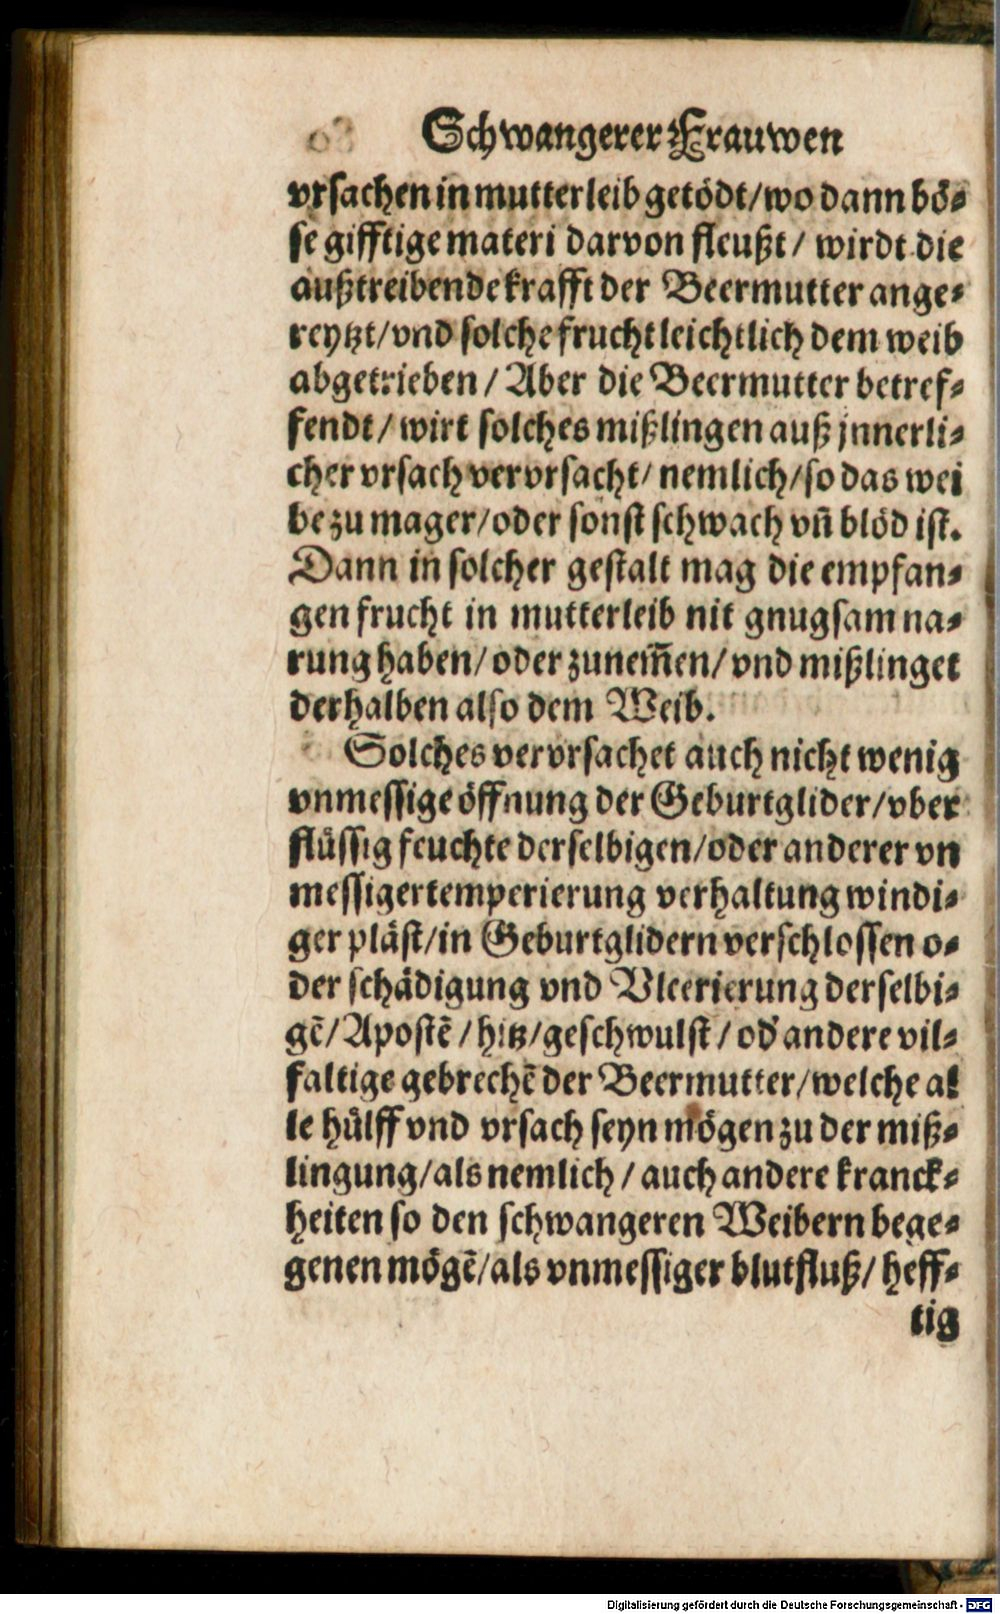 Schwangerer Frauwen
vrsachen in mutterleib getödt/wo dann bö⸗
se gifftige materi darvon fleußt/ wirdt die
außtreibende krafft der Beermutter ange⸗
reytzt/vnd solche frucht leichtlich dem weib
abgetrieben / Aber die Beermutter betref⸗
fendt/ wirt solches mißlingen auß jnnerli⸗
cher vrsach vervrsacht/ nemlich/so das wei
be zu mager/oder sonst schwach vn̄ blöd ist.
Dann in solcher gestalt mag die empfan⸗
gen frucht in mutterleib nit gnugsam na⸗
rung haben/ oder zunem̄en/ vnd mißlinget
derhalben also dem Weib.
Solches vervrsachet auch nicht wenig
vnmessige öffnung der Geburtglider/vber
flüssig feuchte derselbigen/oder anderer vn
messiger temperierung verhaltung windi⸗
ger pläst/in Geburtglidern verschlossen o⸗
der schädigung vnd Vlcerierung derselbi⸗
gē/Apostē / hitz/geschwulst / od' andere vil⸗
faltige gebrechē der Beermutter/welche al
le hülff vnd vrsach seyn mögen zu der miß⸗
lingung/als nemlich / auch andere kranck⸗
heiten so den schwangeren Weibern bege⸗
genen mögē/als vnmessiger blutfluß/ heff⸗
tig
Digitalisierung gefördert durch die Deutsche Forschungsgemeinschaft - DFG